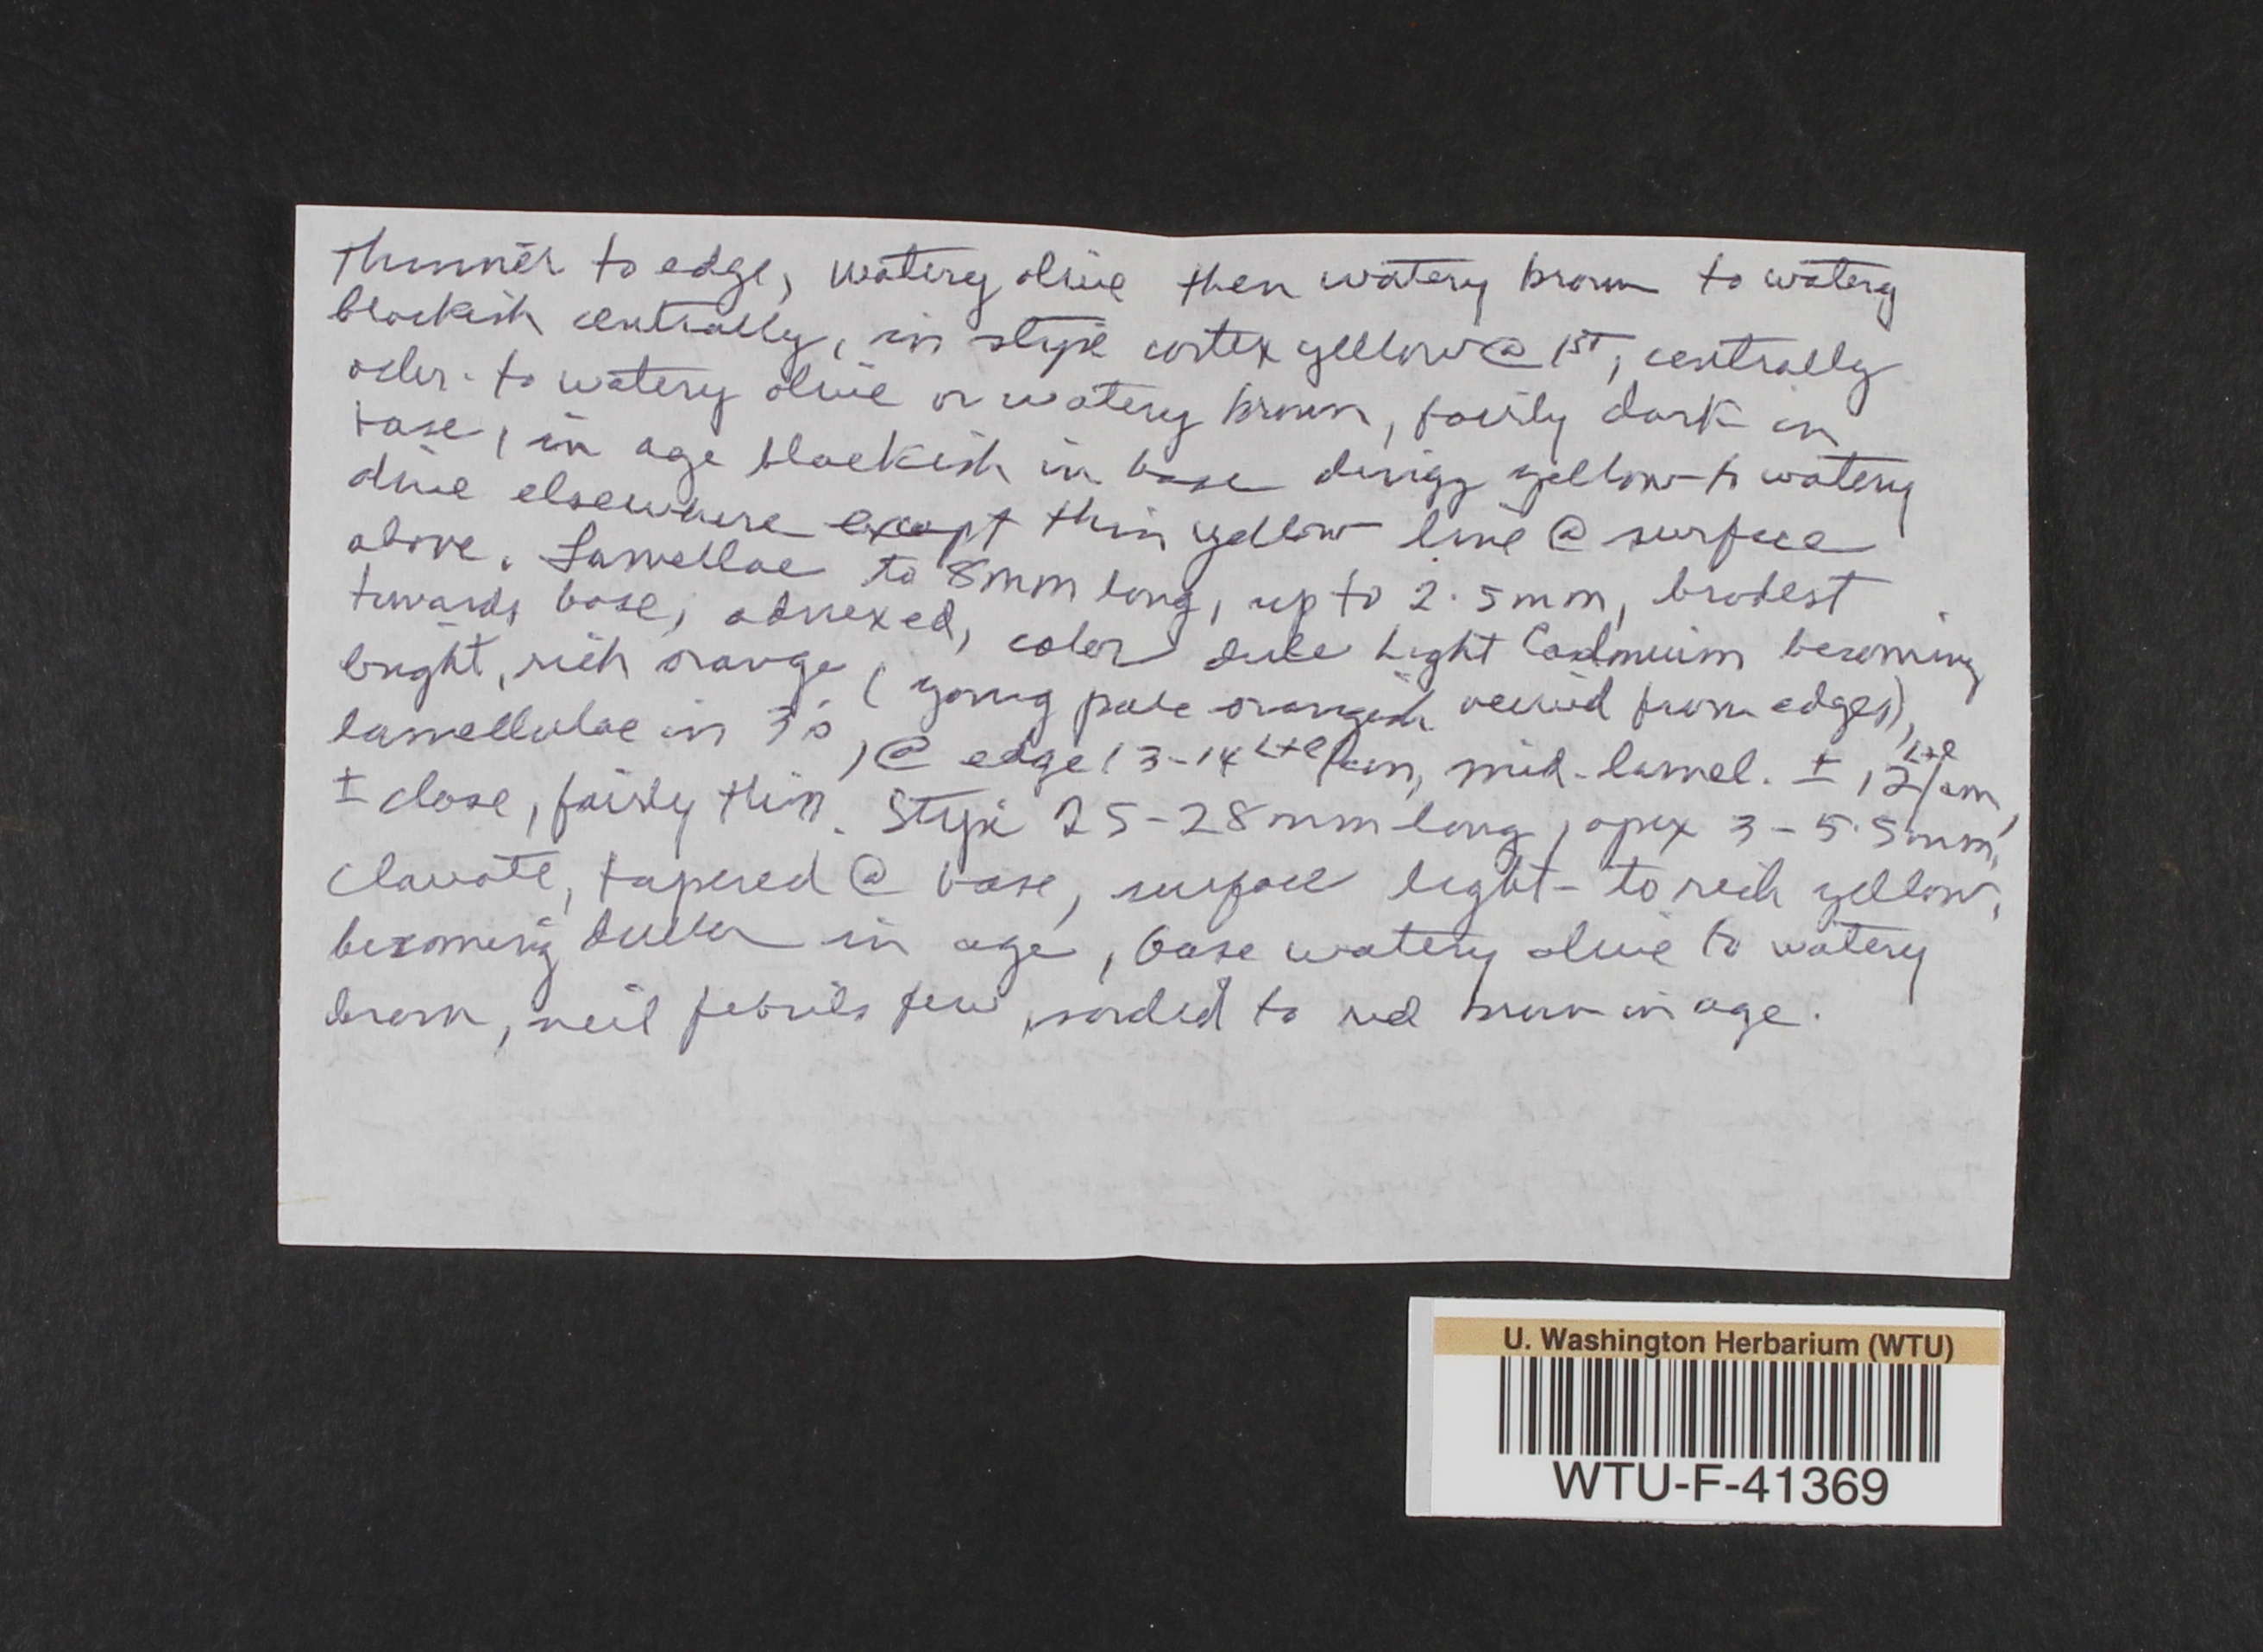 thinner to edge, watery olive then watery brown to watery
blackish centrally, in stipe cortex yellow @ 1ST, centrally
ocher- to watery olive or watery brown, fairly dark in
base, in age blackish in base dingy yellow- to watery
olive elsewhere except thin yellow line @ surface
above. Lamellae to 8mm long, up to 2.5mm, brodest
towards base, adnexed, color dull Light Cadmium becoming
bright, rich orange (young pale orangish veiwed from edges),
lamellulae in 3's, @ edge 13-14 L+l/cm, mid-lamel. ± 12 L+l/cm,
± close, fairly thin. Stipe 25-28mm long, apex 3-5.5mm,
clavate, tapered @ base, surface light- to rich yellow,
becoming duller in age, base watery olive to watery
brown, veil febrils few, sordid to red brown in age.
U. Washington Herbarium (WTU)
WTU-F-41369